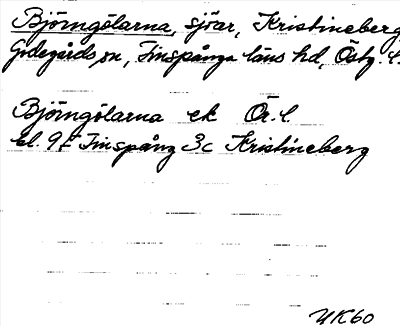 Björngölarna, sjöar, Kristineberg,
Godegårds sn, Finspånga läns hd, Östg. l.
Björngölarna ek Ör. l.
bl. 9 f Finspång 3c Kristineberg
UK60